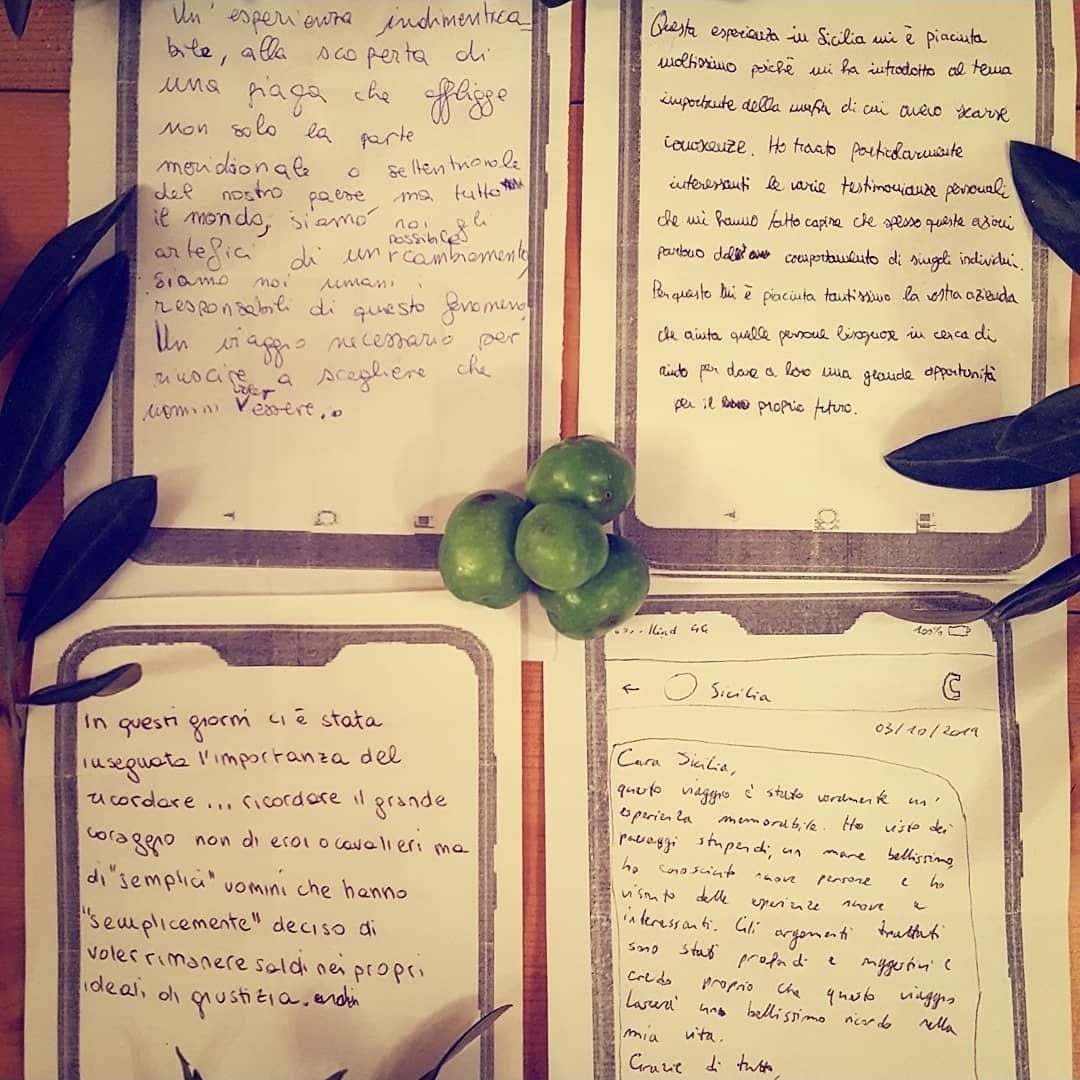 Un' esperienza indimentica
bile, alla scoperta di
una piaga che affligge
non solo la parte
meridionale o settentrionale
del nostro paese ma tutto
il mondo, siamo noi gli
artefici di un possibile cambiamento,
siamo noi umani i
responsabili di questo fenomeno.
Un viaggio necessario per
riuscire a scegliere che
uomini voler essere.
Questa esperienza in Sicilia mi è piaciuta
moltissimo poiché mi ha introdotto al tema
importante della mafia di cui avevo scarse
conoscenze. Ho trovato particolarmente
interessanti le varie testimonianze personali
che mi hanno fatto capire che spesso queste azioni
partono dal comportamento di singoli individui.
Per questo mi è piaciuta tantissimo la vostra azienda
che aiuta quelle persone bisognose in cerca di
aiuto per dare a loro una grande opportunità
per il proprio futuro.
In questi giorni ci è stata
insegnata l'importanza del
ricordare... ricordare il grande
coraggio non di eroi o cavalieri ma
di "semplici" uomini che hanno
"semplicemente" deciso di
voler rimanere saldi nei propri
ideali di giustizia.
Iliad 4G 100%
← Sicilia
03/10/2019
Cara Sicilia,
questo viaggio è stato veramente un'
esperienza memorabile. Ho visto dei
paesaggi stupendi, un mare bellissimo,
ho conosciuto nuove persone e ho
vissuto delle esperienze nuove e
interessanti. Gli argomenti trattati
sono stati profondi e suggestivi e
credo proprio che questo viaggio
lascerà un bellissimo ricordo nella
mia vita.
Grazie di tutto,